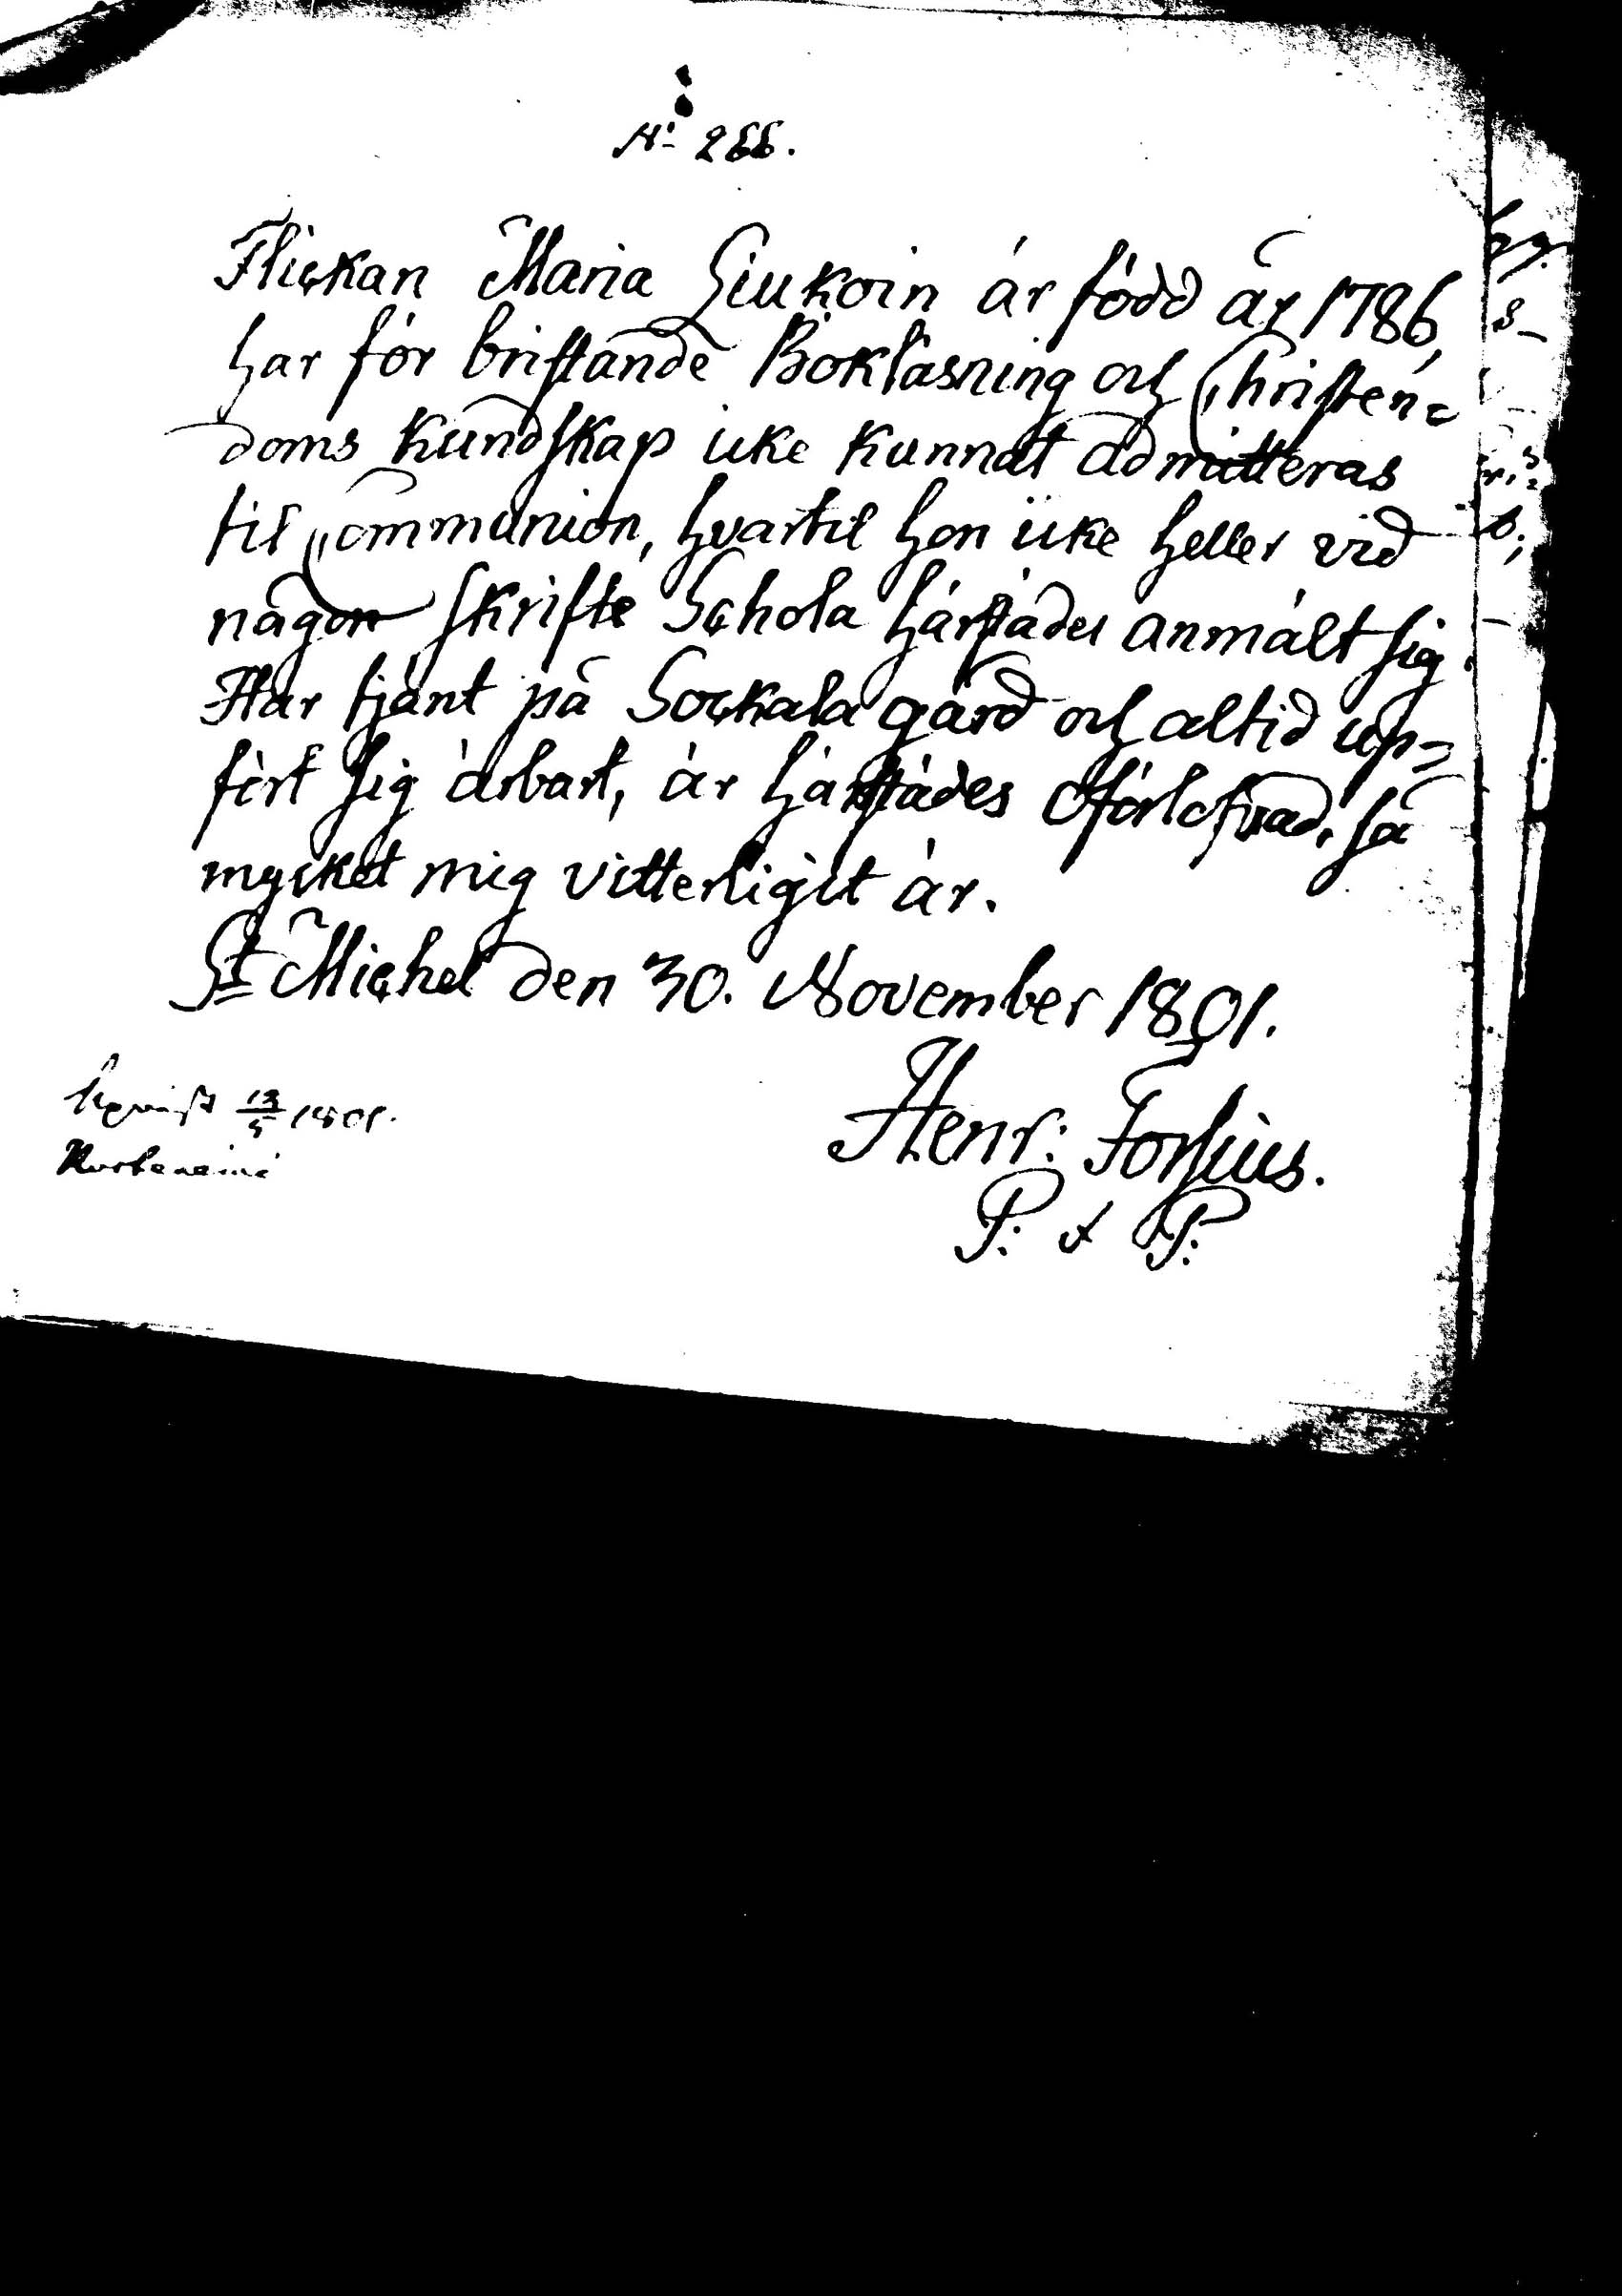 No 266.
Flickan Maria Hiukoin är född år 1786,
har för bristande Bokläsning och Christen=
doms kundskap icke kunnat admitteras
til Communion, hvartil hon icke heller vid
någon skrifte Schola härstädes anmält sig.
Har tjänt på Sockala gård och altid up=
fört sig ärbart, är härstädes oförlofvad, så
mycket mig vitterligit är.
St Michel den 30. November 1801.
Henr: Forsius.
P: & P:
13/5 1801.